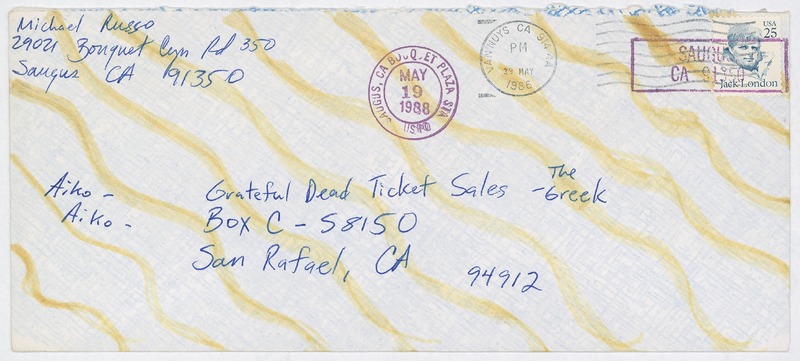 Michael Russo
29021 Bouquet Cyn Rd 350
Saugus CA 91350
SAUGUS, CA BOUQUET PLAZA STA
MAY
19
1988
USPO
VAN NUYS, CA 914
PM
19 MAY
1988
USA
25
SAUGUS
CA 91350
Jack London
Aiko - Grateful Dead Ticket Sales - The Greek
Aiko - Box C - S8150
San Rafael, CA 94912